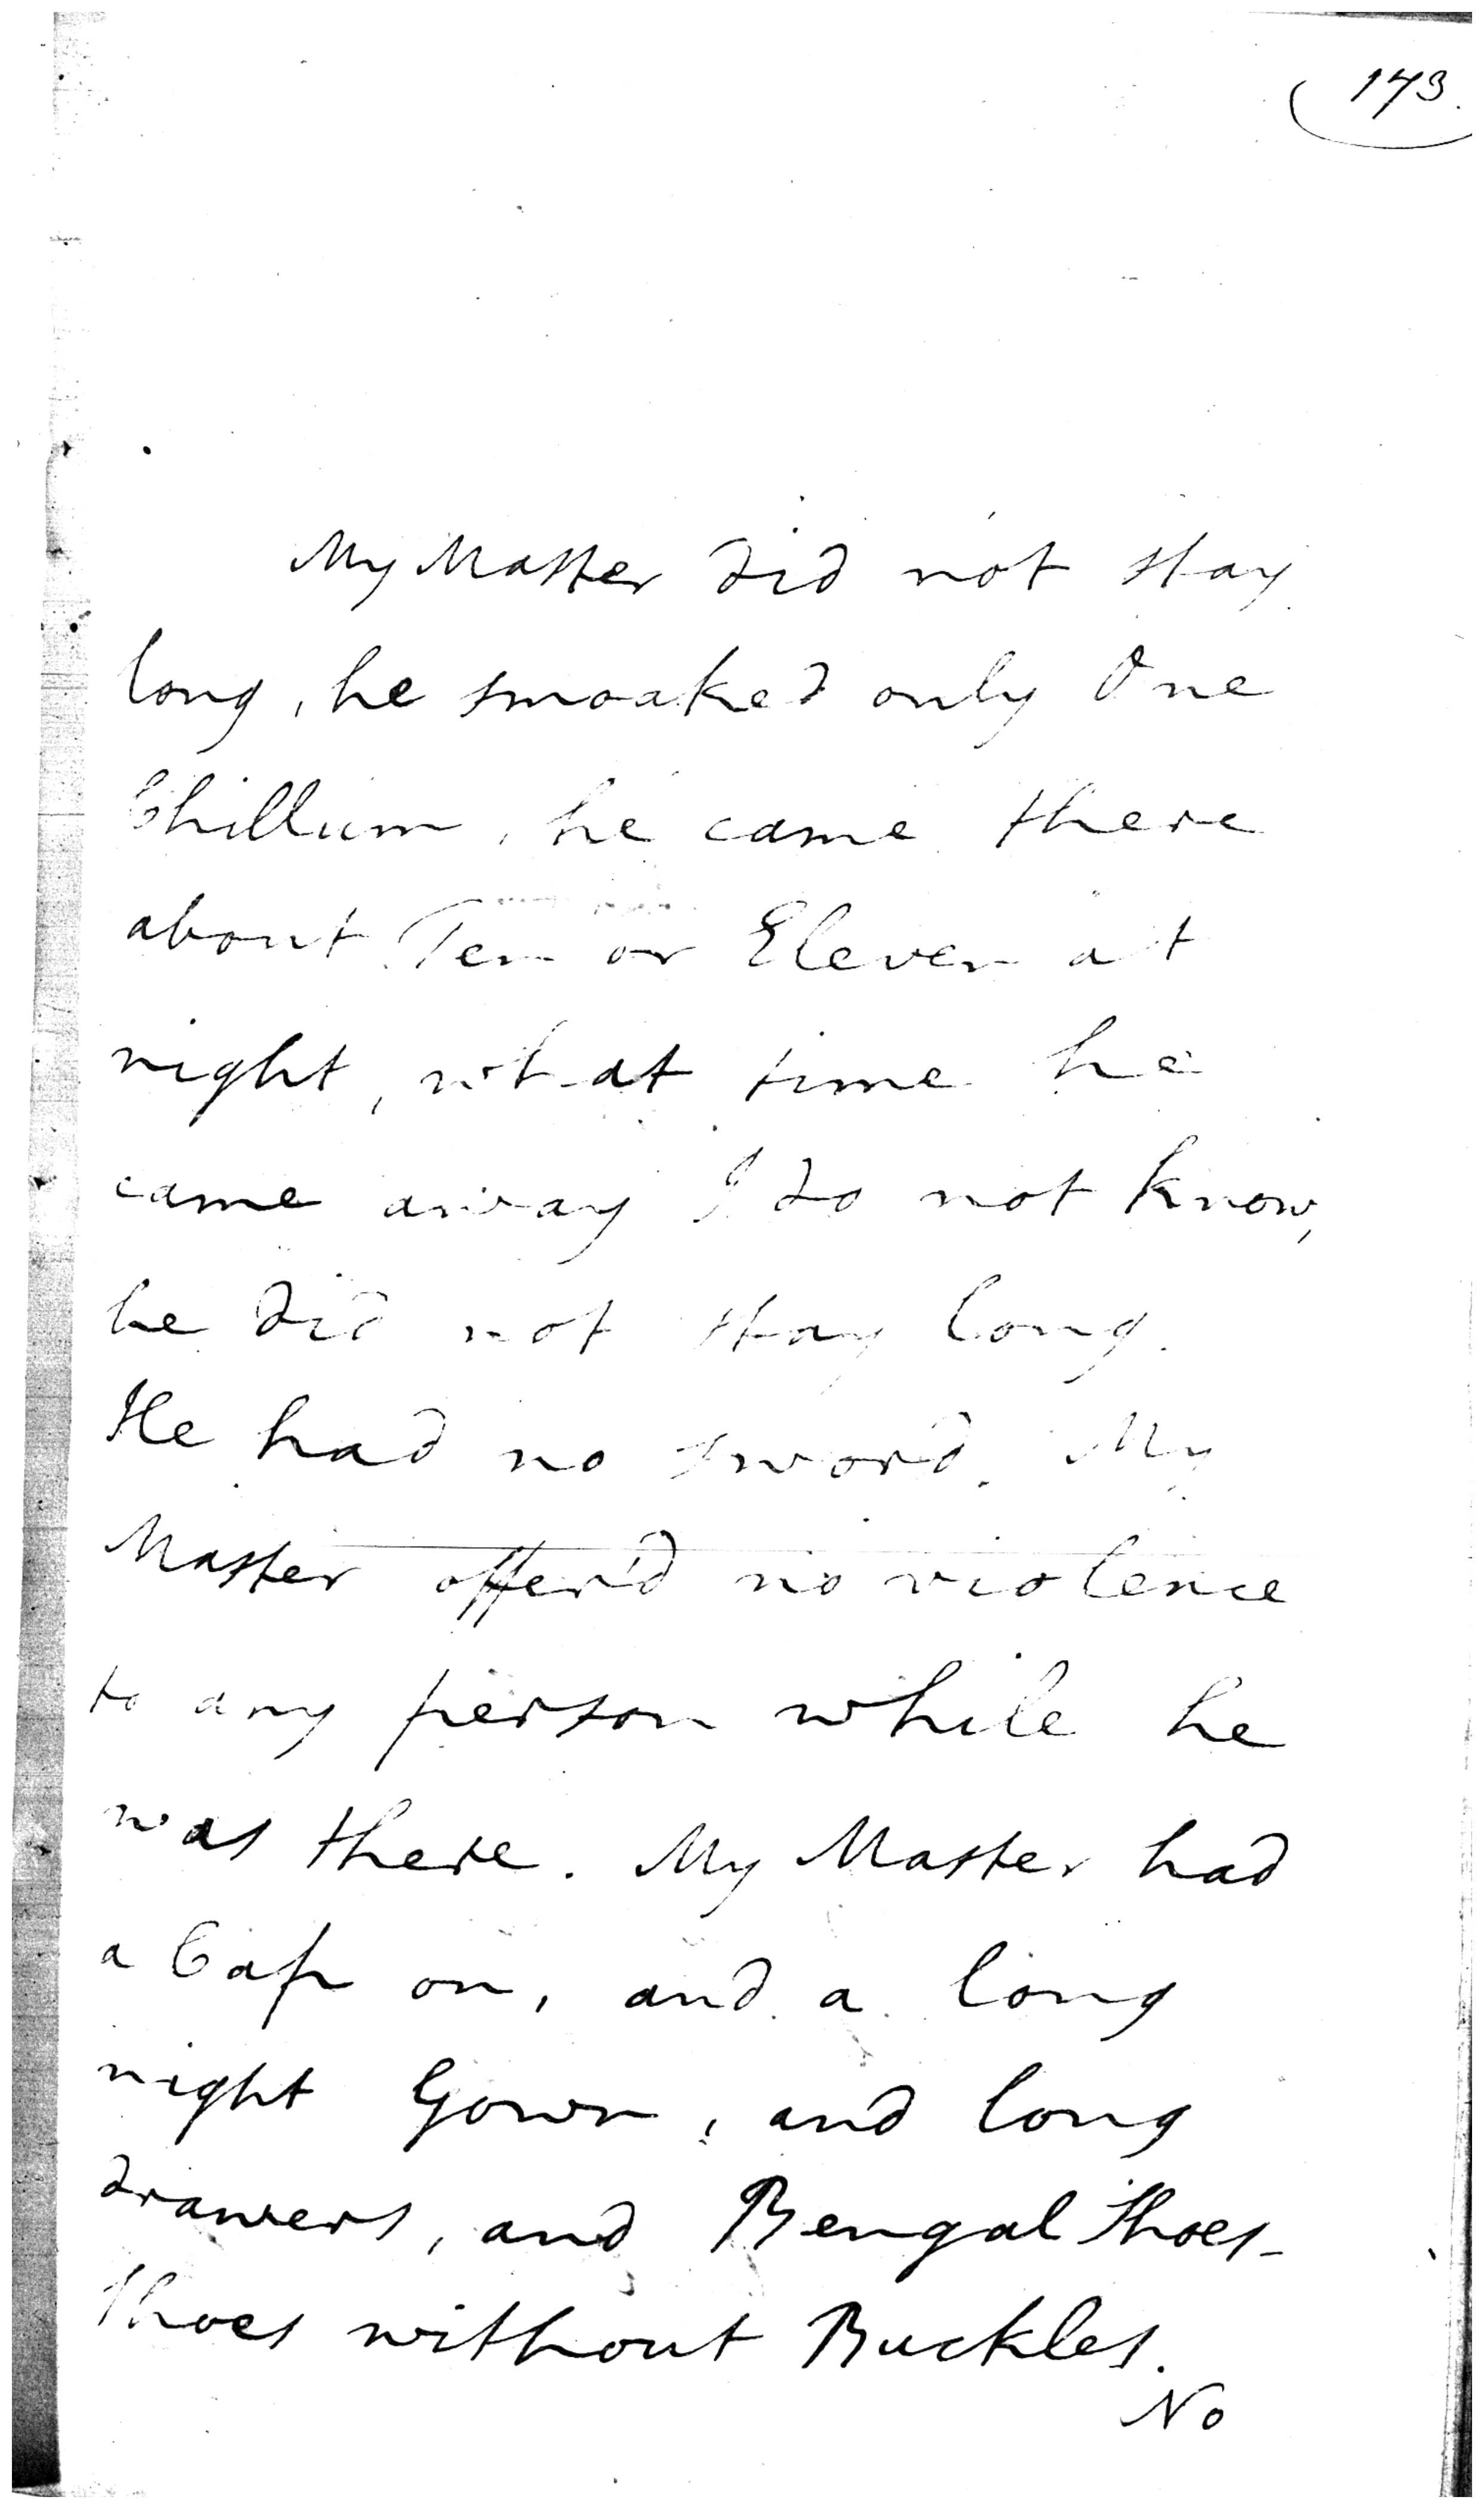 143.
My Master did not stay
long, he smoaked only One
Chillum, he came there
about Ten or Eleven at
night, what time he
came away I do not know,
he did not stay long.
He had no sword. My
Master offer'd no violence
to any person while he
was there. My Master had
a Cap on, and a long
night Gown, and long
drawers, and Bengal Shoes -
Shoes without Buckles.
No